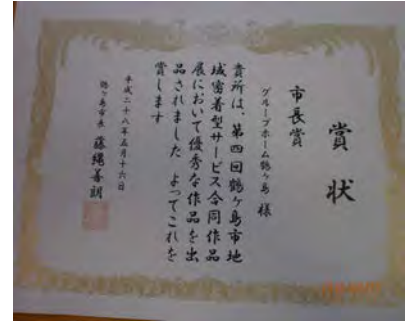 賞状
市長賞
グループホーム鶴ヶ島 様
貴所は、第四回鶴ヶ島市地
域密着型サービス合同作品
展において優秀な作品を出
品されました よってこれを
賞します
平成二十八年五月十六日
鶴ヶ島市長 藤縄善朗